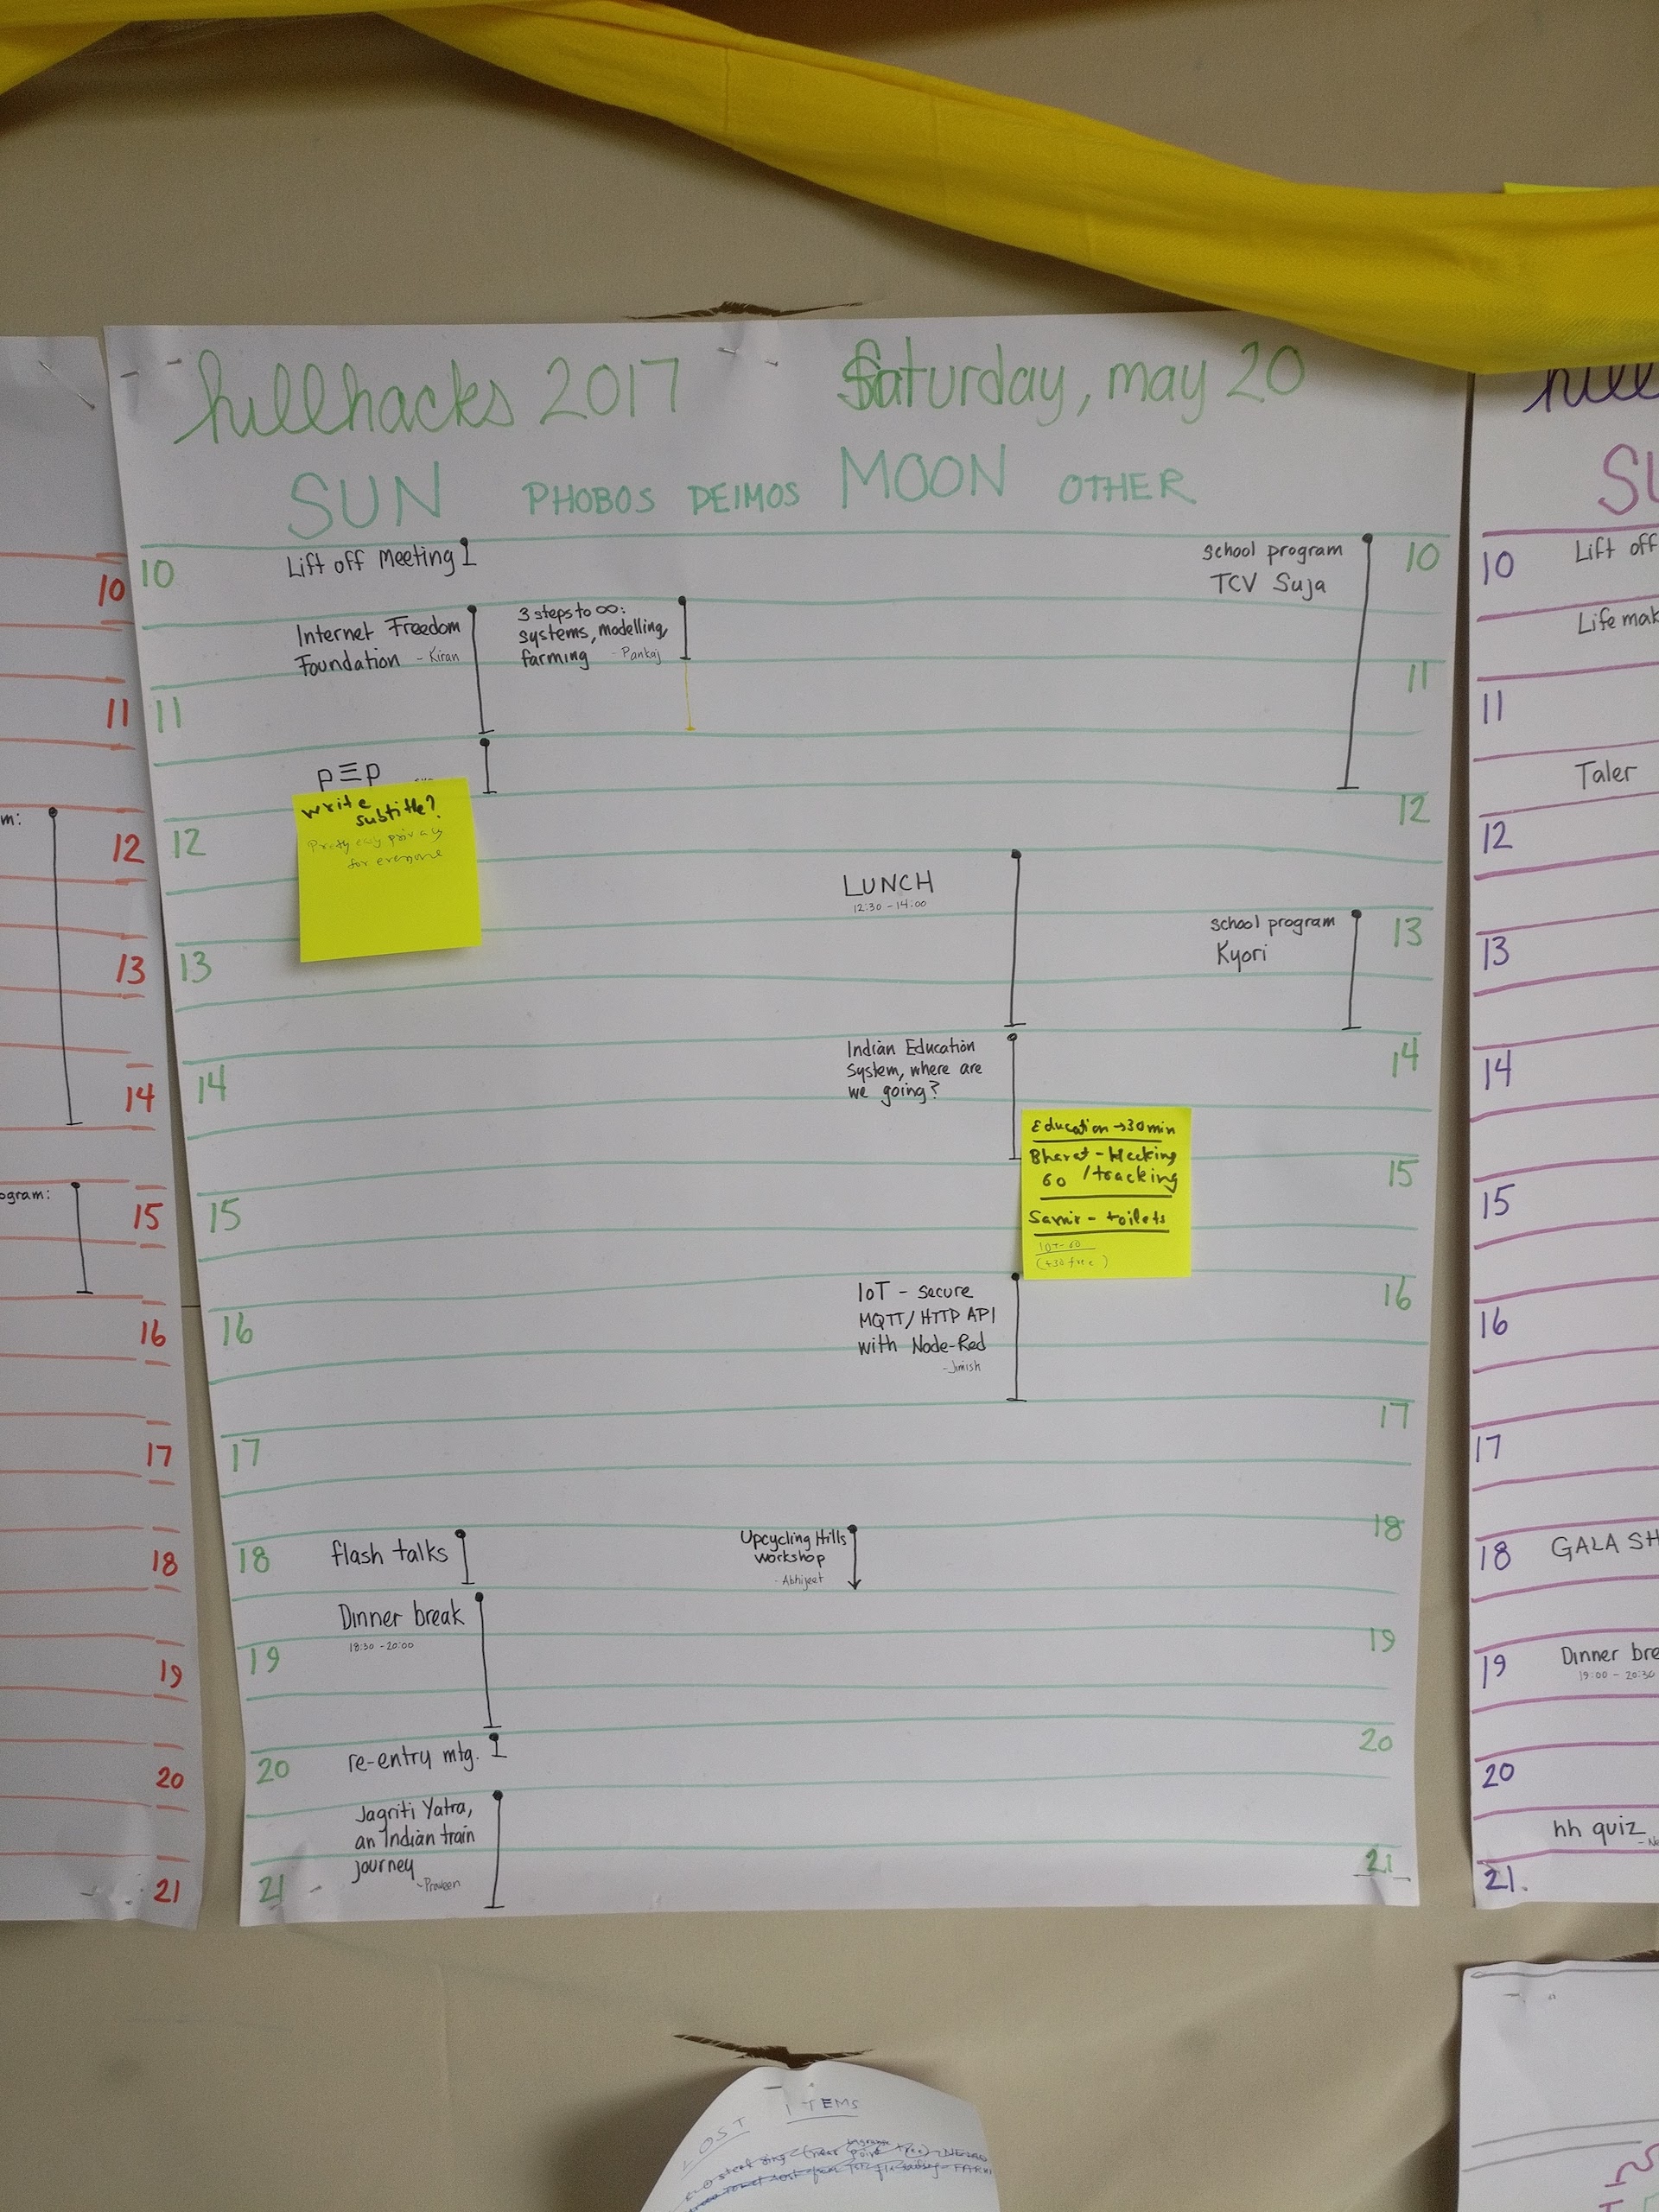 hillhacks 2017 Saturday, may 20
SUN PHOBOS DEIMOS MOON OTHER
10
Lift off Meeting
school program
TCV Suja
10
Internet Freedom
Foundation - Kiran
3 steps to ∞:
systems, modelling,
farming - Pankaj
11
11
p≡p
write
subtitle?
Pretty easy privacy
for everyone
12
12
LUNCH
12:30 - 14:00
school program
Kyori
13
13
Indian Education
System, where are
we going?
14
14
Education → 30 min
Bharat -
60 / tracking
Samir - toilets
(+30 free)
15
15
IoT - secure
MQTT/HTTP API
with Node-Red
- Jimish
16
16
17
17
flash talks
Upcycling Hills
workshop
- Abhijeet
18
18
Dinner break
18:30 - 20:00
19
19
re-entry mtg.
20
20
Jagriti Yatra,
an Indian train
journey
- Praveen
21
21
10
11
12
13
14
15
16
17
18
19
20
21
m:
ogram:
hill
SU
10
Lift off
Life mak
11
Taler
12
13
14
15
16
17
18 GALA SH
19 Dinner bre
19:00 - 20:30
20
hh quiz
21.
LOST ITEMS